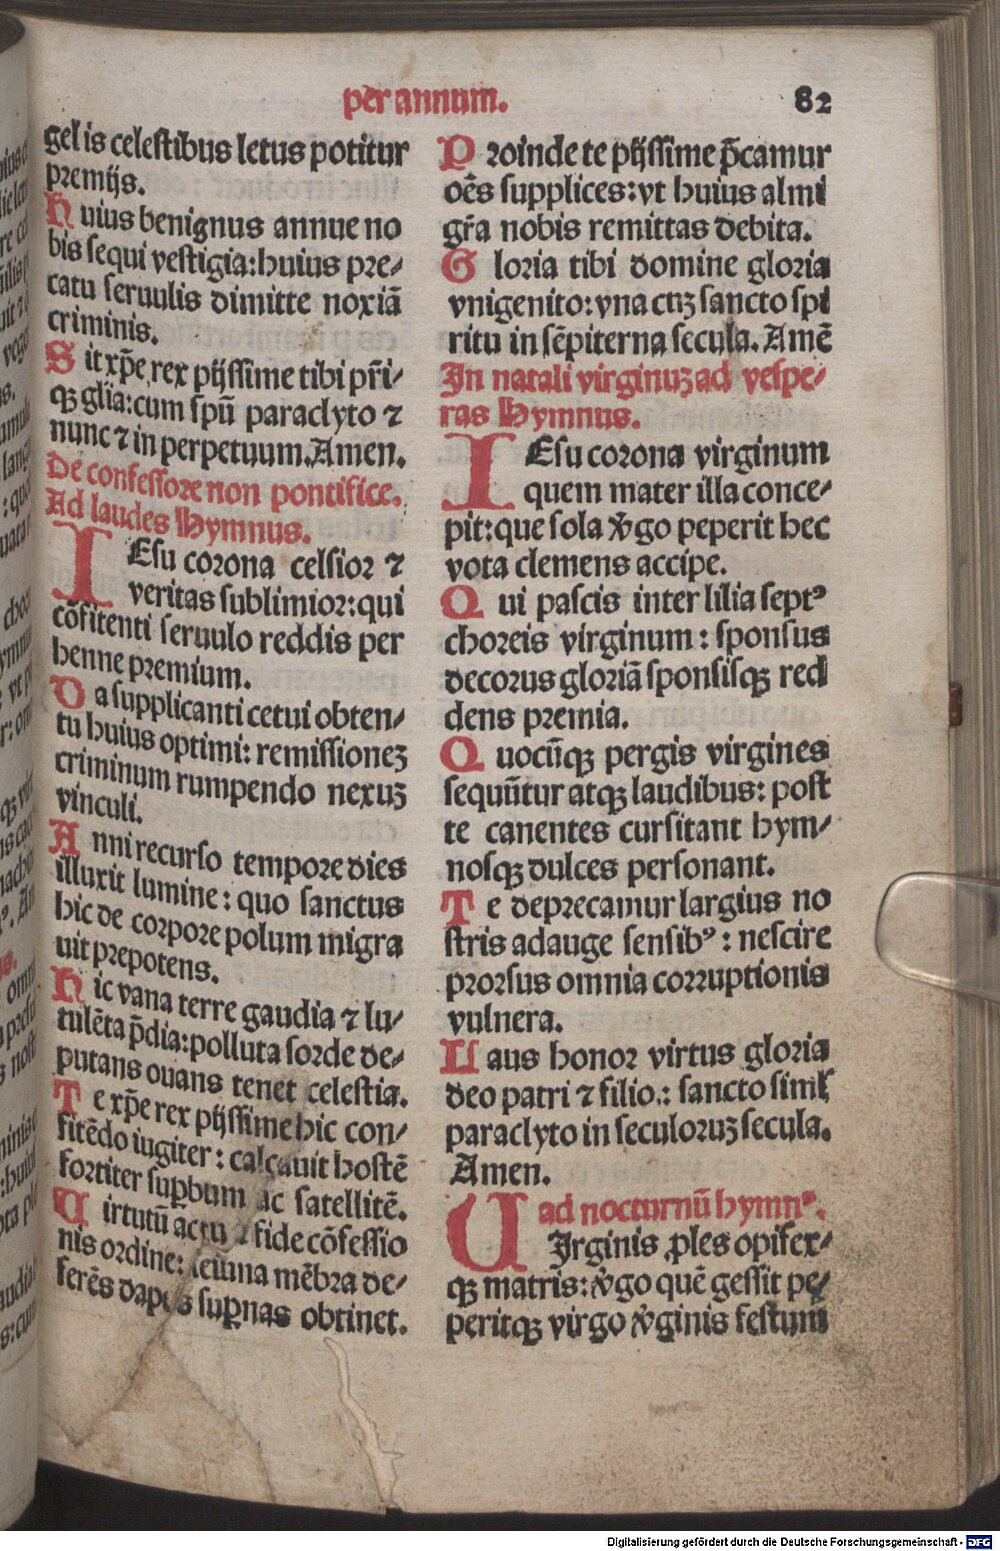 per annum.
82
gel is celestibus letus potitur
premijs.
Huius benignus annue no
bis sequi vestigia: huius pre-
catu seruulis dimitte noxiā
criminis.
Sit xp̄e rex pijssime tibi pr̄i-
qꝫ glīa: cum spū paraclyto ⁊
nunc ⁊ in perpetuum. Amen.
De confessore non pontifice.
Ad laudes Hymnus.
IEsu corona celsior ⁊
veritas sublimior: qui
cōfitenti seruulo reddis per
henne premium.
Da supplicanti cetui obten-
tu huius optimi: remissionez
criminum rumpendo nexuz
vinculi.
Anni recurso tempore dies
illuxit lumine: quo sanctus
hic de corpore polum migra
uit prepotens.
Hic vana terre gaudia ⁊ lu-
tulēta p̄dia: polluta sorde de-
putans ouans tenet celestia.
Te xp̄e rex pijssime hic con-
fitēdo iugiter: calcauit hostē
fortiter suꝑbum ac satellitē.
Uirtutū actu ⁊ fide cōfessio
nis ordine: ieiuna mēbra de-
ferēs dapes suꝑnas obtinet.
Proinde te pijssime p̄camur
oēs supplices: vt huius almi
gr̄a nobis remittas debita.
Gloria tibi domine gloria
vnigenito: vna cuꝫ sancto spi
ritu in sēpiterna secula. Amē
In natali virginuꝫ ad vespe-
ras Hymnus.
IEsu corona virginum
quem mater illa conce-
pit: que sola v̾go peperit hec
vota clemens accipe.
Qui pascis inter lilia septꝰ
choreis virginum: sponsus
decorus gloriā sponsisqꝫ red
dens premia.
Quocūqꝫ pergis virgines
sequūtur atqꝫ laudibus: post
te canentes cursitant hym-
nosqꝫ dulces personant.
Te deprecamur largius no
stris adauge sensibꝰ: nescire
prorsus omnia corruptionis
vulnera.
Laus honor virtus gloria
deo patri ⁊ filio.: sancto simĺ
paraclyto in seculoruꝫ secula.
Amen.
ad nocturnū hymnꝰ.
UIrginis ꝓles opifex-
qꝫ matris: v̾go quē gessit pe-
peritqꝫ virgo v̾ginis festum
Digitalisierung gefördert durch die Deutsche Forschungsgemeinschaft - DFG